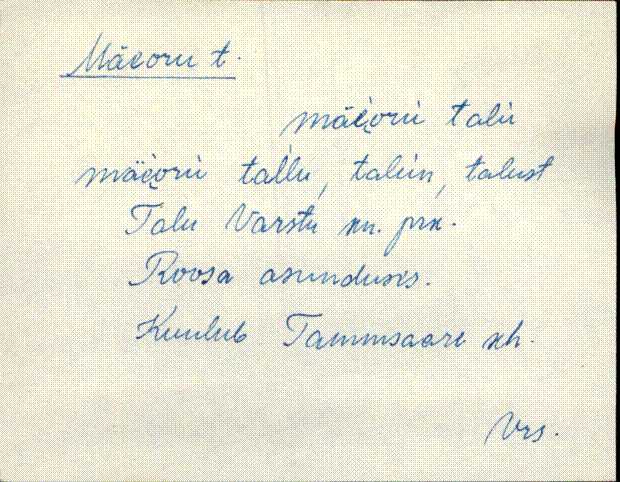 Mäeoru t.
mäe̬orù talu
mäe̬orù tal̀lu, talun, talust
Talu Varstu kn. prk.
Roosa asunduses.
Kuulub Tammsaare kh.
Vrs.